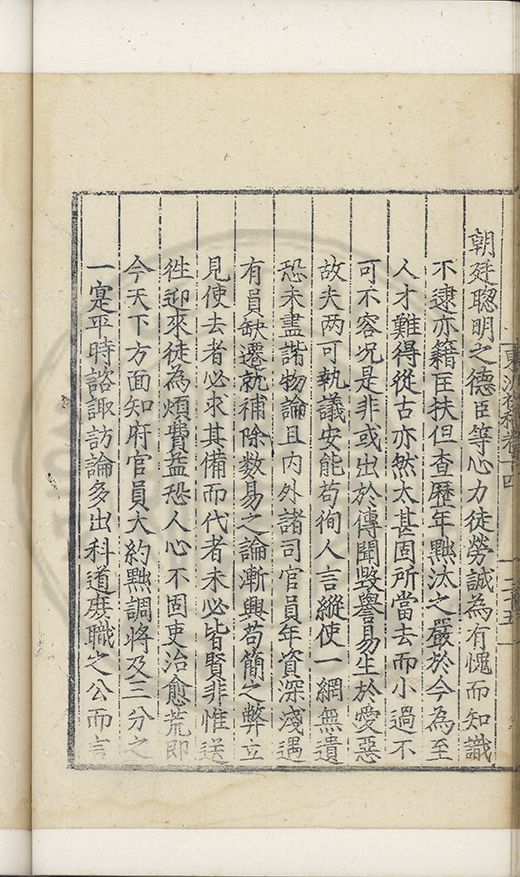 朝廷聰明之德臣等心力徒勞誠為有愧而知識
不逮亦籍匡扶但查歷年黜汰之嚴於今為至
人才難得從古亦然太甚固所當去而小過不
可不容况是非或出於傳聞毀譽易生於愛惡
故夫两可執議安能苟徇人言縱使一網無遺
恐未盡諧物論且内外諸司官員年資深淺遇
有員缺遷就補除數易之論漸興苟簡之弊立
見使去者必求其備而代者未必皆賢非惟送
徃迎來徒為煩費益恐人心不固吏治愈荒即
今天下方面知府官員大約黜調將及三分之
一寔平時諮諏訪論多出科道庻職之公而言